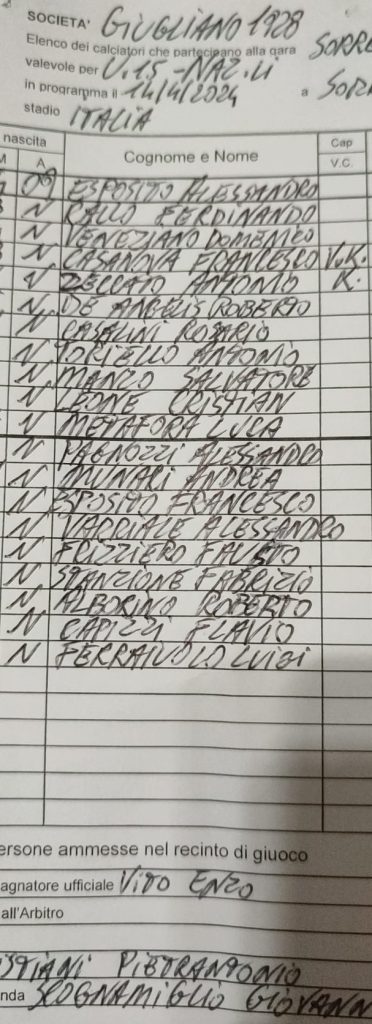 SOCIETA' GIUGLIANO 1928
Elenco dei calciatori che partecipano alla gara SORRE
valevole per U.15 - NAZ.LI
in programma il 14/4/2024 a SOR
stadio ITALIA
nascita Cap
M A. Cognome e Nome V.C.
09 ESPOSITO ALESSANDRO
N RALLO FERDINANDO
N VENEZIANO DOMENICO
N CASANOVA FRANCESCO V.K.
N ZECCATO ANTONIO K.
N DE ANGELIS ROBERTO
N CASALINI ROSARIO
N TORIELLO ANTONIO
N MANCO SALVATORE
N LEONE CRISTIAN
N METAFORA LUCA
N PAGNOZZI ALESSANDRO
N MUNARI ANDREA
N ESPOSITO FRANCESCO
N VARRIALE ALESSANDRO
N FRIZZIERO FAUSTO
N STANZIONE FABRIZIO
N ALBORINO ROBERTO
N CAPIZZI FLAVIO
N FERRAIUOLO LUIGI
ersone ammesse nel recinto di giuoco
agnatore ufficiale VITO ENZO
all'Arbitro
STIANI PIETRANTONIO
nda SCOGNAMIGLIO GIOVANN